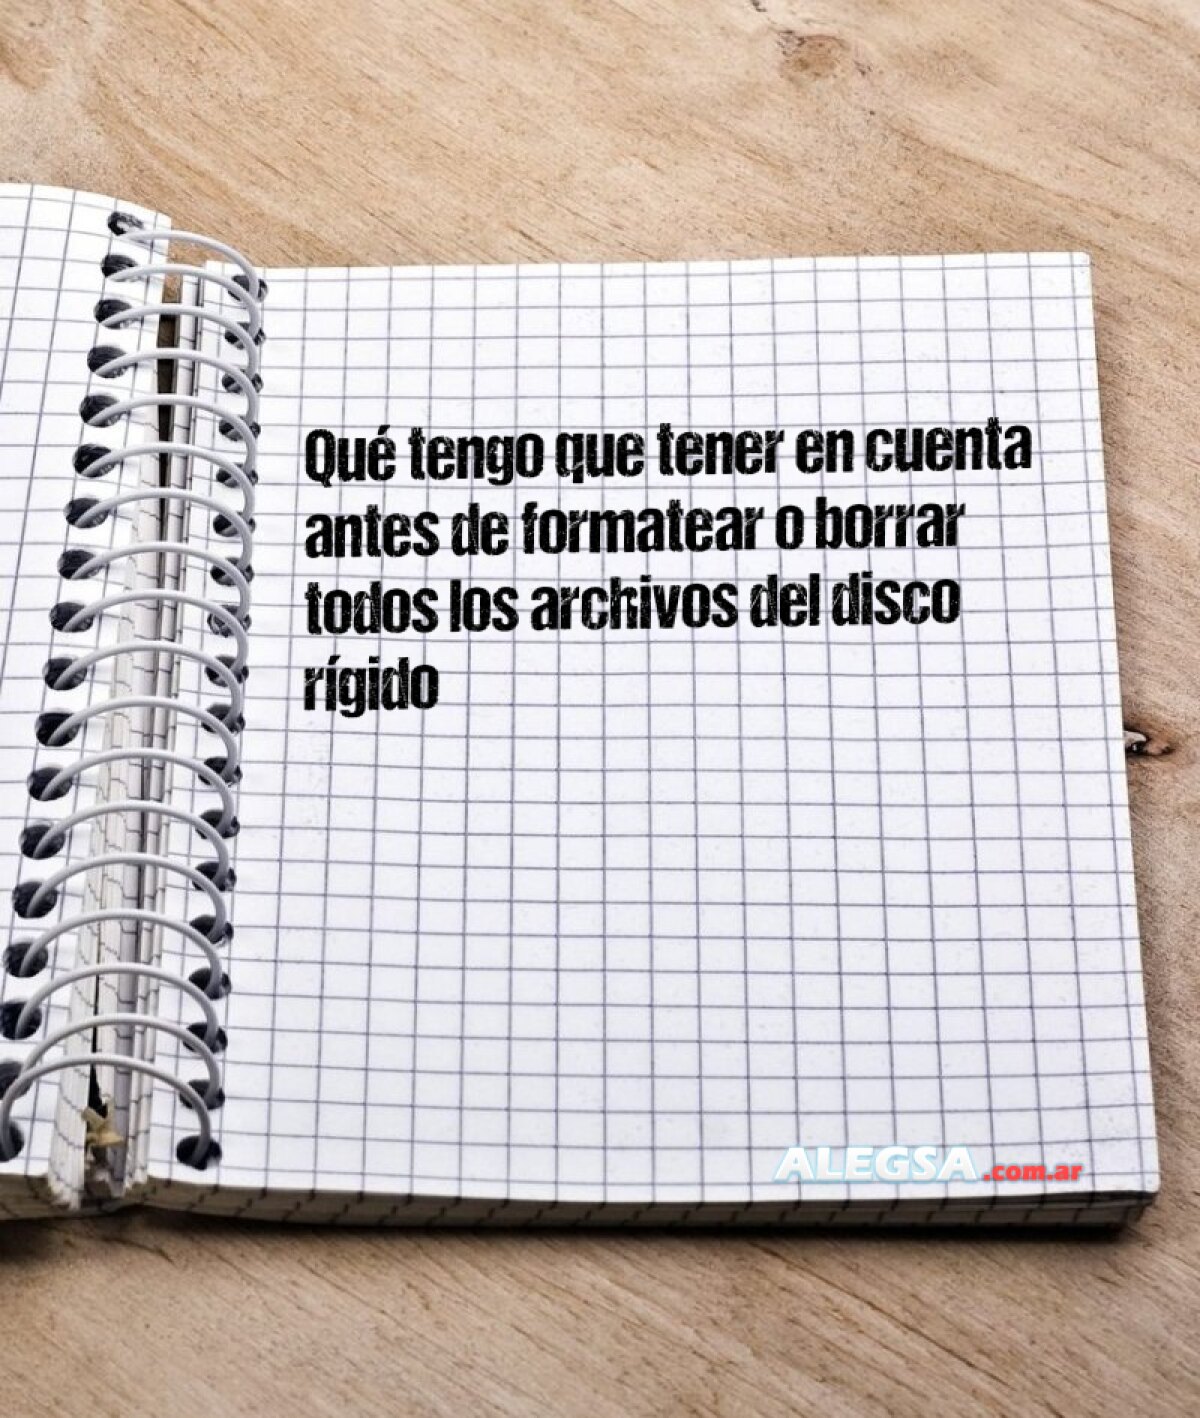 Qué tengo que tener en cuenta
antes de formatear o borrar
todos los archivos del disco
rígido
ALEGSA.com.ar